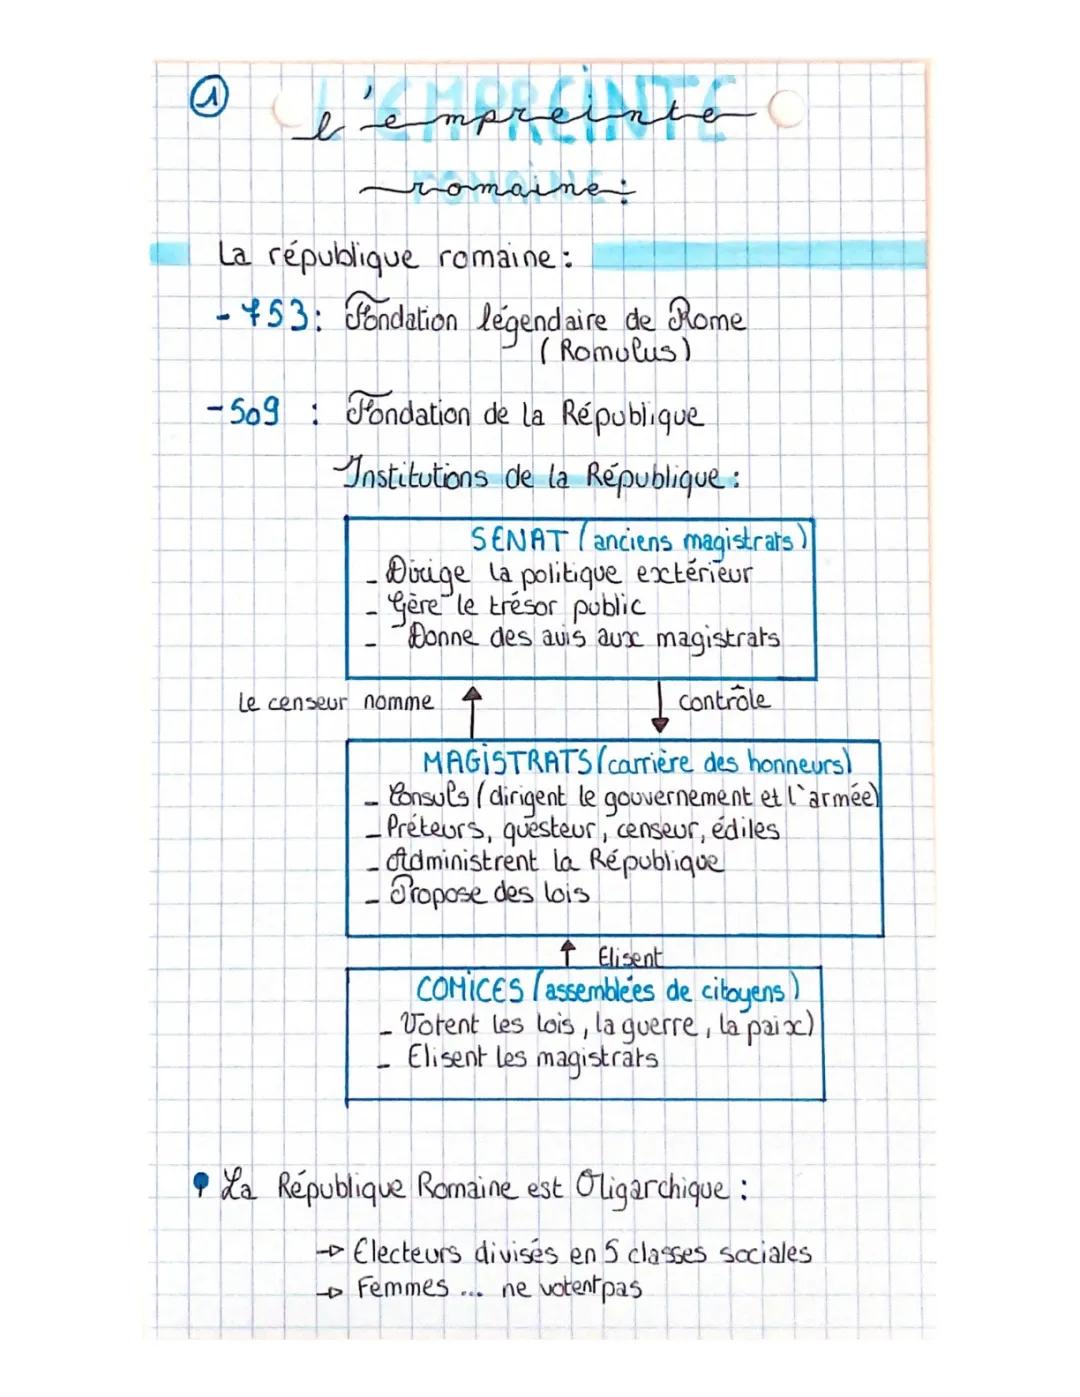 1
L'EMPREINTE
l'empreinte
romaine:
La république romaine:
-753: Fondation légendaire de Rome
(Romulus)
-509 : Fondation de la République
Institutions de la République:
SENAT (anciens magistrats)
- Dirige la politique extérieur
- Gère le trésor public
- Donne des avis aux magistrats
Le censeur nomme
contrôle
MAGISTRATS (carrière des honneurs)
- Consuls (dirigent le gouvernement et l'armée)
- Préteurs, questeur, censeur, édiles
- Administrent la République
- Propose des lois
Elisent
COMICES (assemblées de citoyens)
- Votent les lois, la guerre, la paix)
- Elisent les magistrats
La République Romaine est Oligarchique :
→ Electeurs divisés en 5 classes sociales
→ Femmes ... ne votent pas